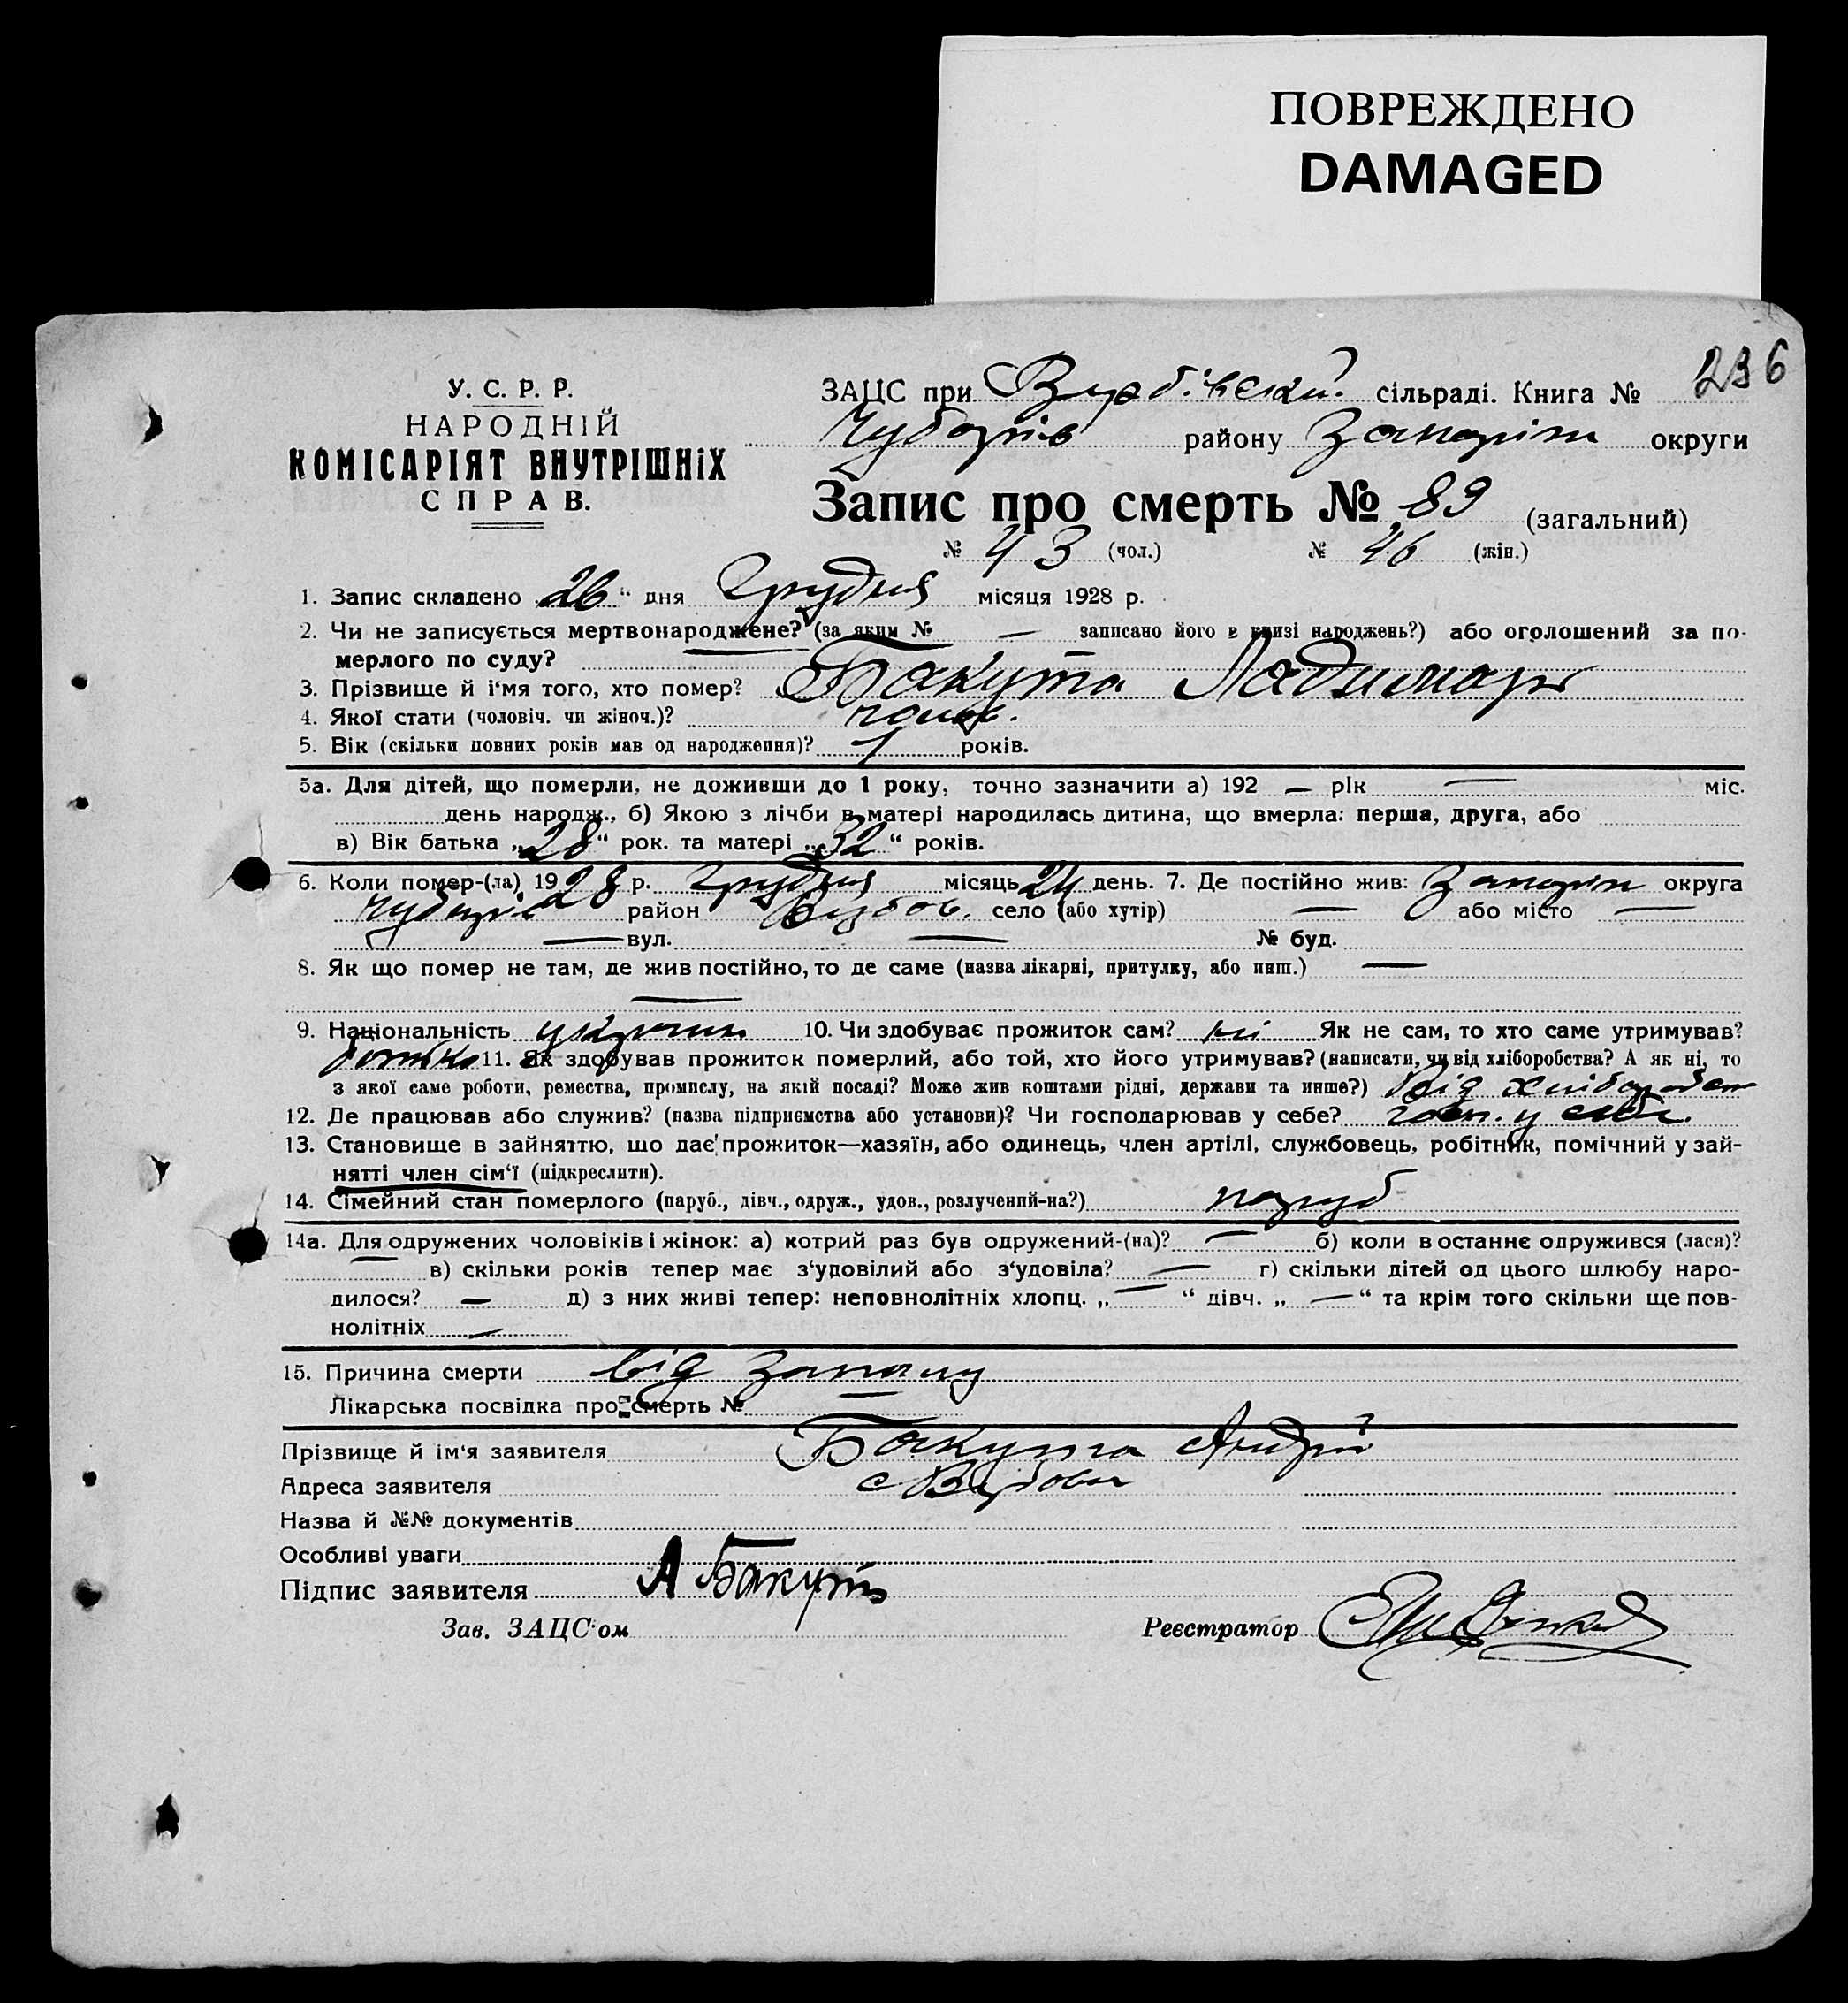 ПОВРЕЖДЕНО
DAMAGED
236
У. С. Р. Р.
НАРОДНІЙ
КОМІСАРІЯТ ВНУТРІШНІХ
СПРАВ.
ЗАЦС при Вербівській. сільраді. Книга №
Чубарів району Запоріж округи
Запис про смерть № 89 (загальний)
№ 43 (чол.) № 46 (жін.)
1. Запис складено „26“ дня Грудня місяця 1928 р.
2. Чи не записується мертвонароджене? (за яким № — записано його в книзі народжень?) або оголошений за по-
мерлого по суду?
3. Прізвище й і'мя того, хто помер? Бакута Ладимар
4. Якої стати (чоловіч. чи жіноч.)? чолов.
5. Вік (скільки повних років мав од народження)? 1 років.
5а. Для дітей, що померли, не доживши до 1 року, точно зазначити а) 192 — рік — міс.
день народж., б) Якою з лічби в матері народилась дитина, що вмерла: перша, друга, або
в) Вік батька „28“ рок. та матері „32“ років.
6. Коли помер-(ла) 1928 р. Грудня місяць 24 день. 7. Де постійно жив: Запоріж округа
Чубарів район Вербов. село (або хутір) — або місто —
— вул. — № буд.
8. Як що помер не там, де жив постійно, то де саме (назва лікарні, притулку, або инш.) —
—
9. Національність українець 10. Чи здобуває прожиток сам? ні Як не сам, то хто саме утримував?
батько 11. Як здобував прожиток померлий, або той, хто його утримував? (написати, чи від хліборобства? А як ні, то
з якої саме роботи, ремества, промислу, на якій посаді? Може жив коштами рідні, держави та инше?) Від хліборобст
12. Де працював або служив? (назва підприємства або установи)? Чи господарював у себе? госп. у себе.
13. Становище в зайняттю, що дає прожиток—хазяїн, або одинець, член артілі, службовець, робітник, помічний у зай-
нятті член сім'ї (підкреслити).
14. Сімейний стан померлого (паруб., дівч., одруж., удов., розлучений-на?) паруб
14а. Для одружених чоловіків і жінок: а) котрий раз був одружений-(на)? — б) коли в останнє одружився (лася)?
— в) скільки років тепер має з'удовілий або з'удовіла? — г) скільки дітей од цього шлюбу наро-
дилося? — д) з них живі тепер: неповнолітніх хлопц. „ — “ дівч. „ — “ та крім того скільки ще пов-
нолітніх —
15. Причина смерти від запалу
Лікарська посвідка про смерть № —
Прізвище й ім'я заявителя Бакута Андрій
Адреса заявителя с Вербова
Назва й №№ документів
Особливі уваги
Підпис заявителя А Бакута
Зав. ЗАЦС'ом Реєстратор